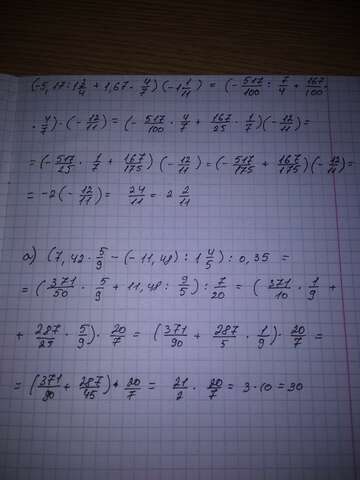 (-5,17:1 3/4 + 1,67 · 4/7)(-1 1/11) = (- 517/100 : 7/4 + 167/100 ·
· 4/7)·(- 12/11) = (- 517/100 · 4/7 + 167/25 · 1/7)(- 12/11) =
= (- 517/25 · 1/7 + 167/175)(- 12/11) = (- 517/175 + 167/175)(- 12/11) =
= -2(- 12/11) = 24/11 = 2 2/11
а) (7,42 · 5/9 - (-11,48) : 1 4/5) : 0,35 =
= (371/50 · 5/9 + 11,48 : 9/5) : 7/20 = (371/10 · 1/9 +
+ 287/25 · 5/9) · 20/7 = (371/90 + 287/5 · 1/9) · 20/7 =
= (371/90 + 287/45) · 20/7 = 21/2 · 20/7 = 3 · 10 = 30